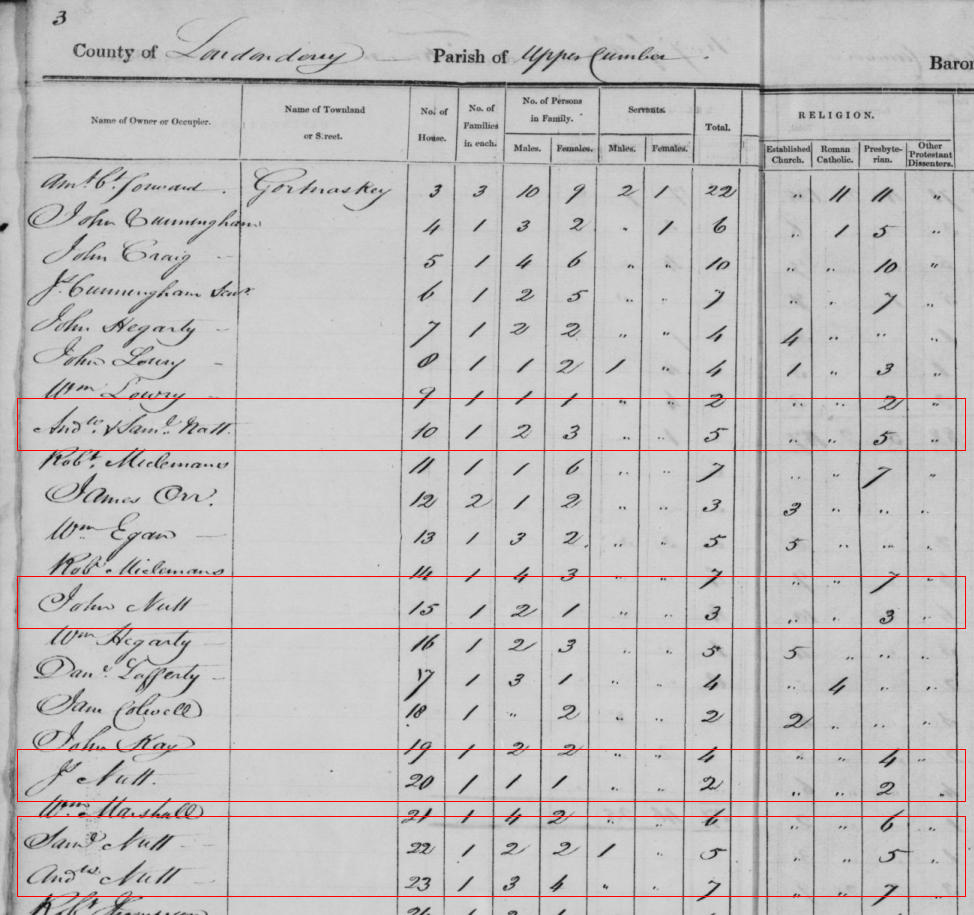 3
County of Londonderry Parish of Upper Cumber. Baron
Name of Owner or Occupier. Name of Townland or S.reet. No. of House. No. of Families in each. No. of Persons in Family. Males. Females. Servants. Males. Females. Total. RELIGION. Established Church. Roman Catholic. Presbyte-rian. Other Protestant Dissenters.
Gortnaskey 3 3 10 9 2 1 22 " 11 11 "
John Cunningham 4 1 3 2 " 1 6 " 1 5 "
John Craig 5 1 4 6 " " 10 " " 10 "
Js. Cunningham Senr. 6 1 2 5 " " 7 " " 7 "
John Hegarty 7 1 2 2 " " 4 4 " " "
John Lowry 8 1 1 2 1 " 4 1 " 3 "
Wm Lowry 9 1 1 1 " " 2 " " 2 "
Andw. & Saml. Nutt. 10 1 2 3 " " 5 " " 5 "
Robt. Miclemans 11 1 1 6 " " 7 " " 7 "
James Orr. 12 2 1 2 " " 3 3 " " "
Wm Egan 13 1 3 2 " " 5 5 " " "
Robt Miclemans 14 1 4 3 " " 7 " " 7 "
John Nutt 15 1 2 1 " " 3 " " 3 "
Wm Hegarty 16 1 2 3 " " 5 5 " " "
Danl. Lafferty 17 1 3 1 " " 4 " 4 " "
Sam Colwell 18 1 " 2 " " 2 2 " " "
John Kay 19 1 2 2 " " 4 " " 4 "
Js Nutt. 20 1 1 1 " " 2 " " 2 "
Wm Marshall 21 1 4 2 " " 6 " " 6 "
Saml Nutt 22 1 2 2 1 " 5 " " 5 "
Andw Nutt 23 1 3 4 " " 7 " " 7 "
Robt 24 1